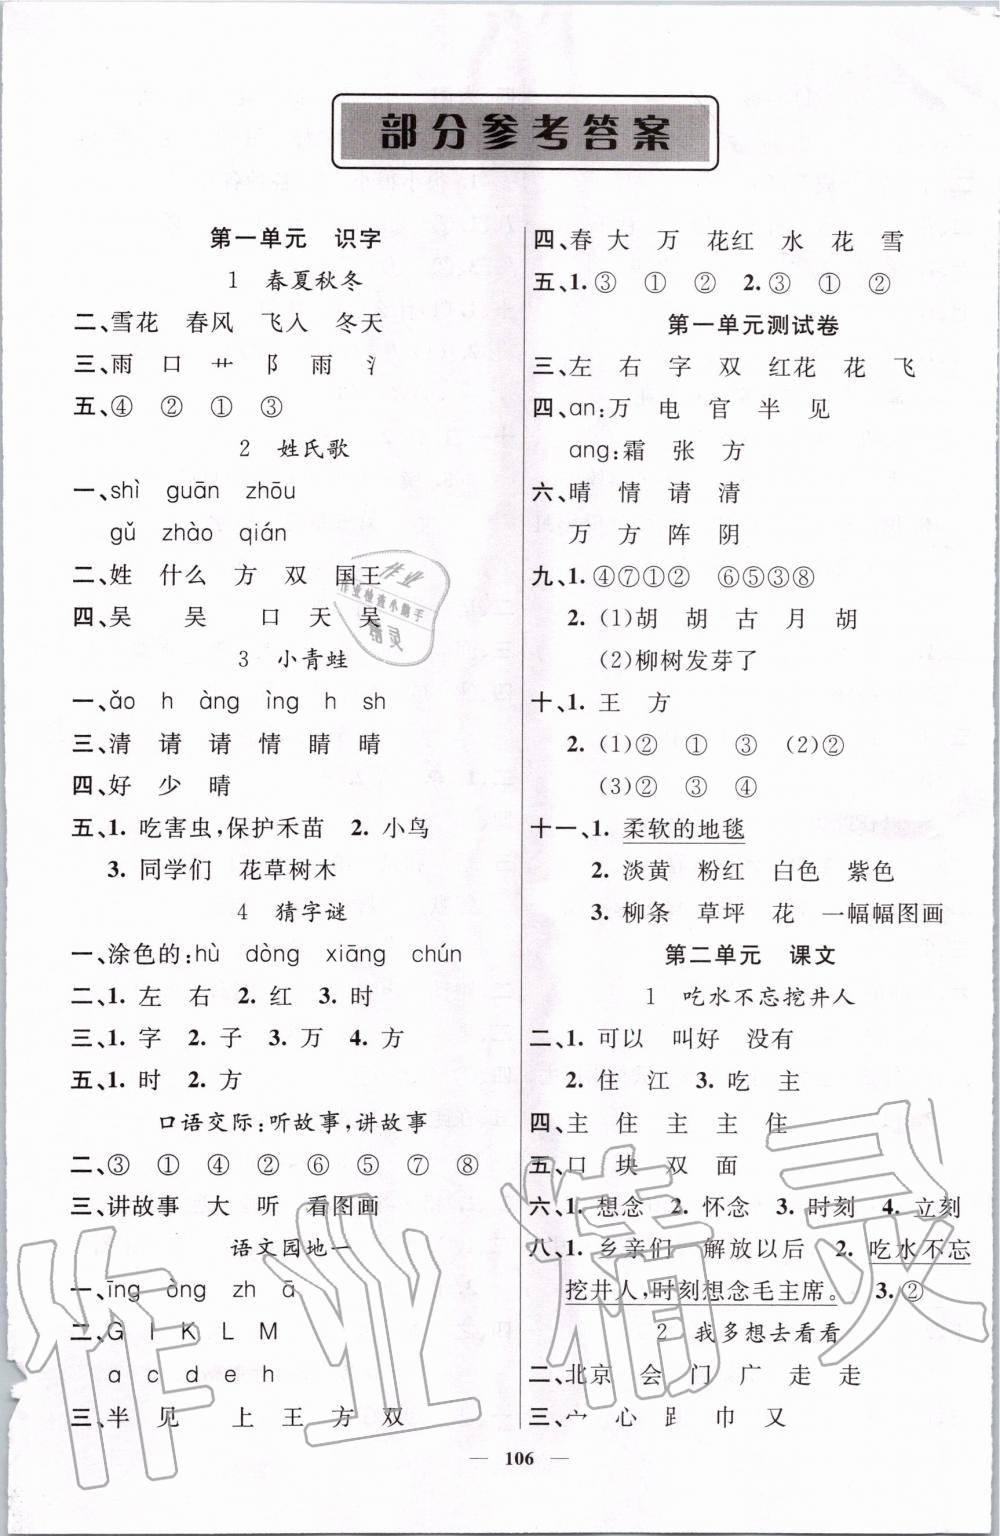 部分参考答案
第一单元 识字
1 春夏秋冬
二、雪花 春风 飞入 冬天
三、雨 口 艹 阝 雨 氵
五、④ ② ① ③
2 姓氏歌
一、shì guān zhōu
gǔ zhào qián
二、姓 什么 方 双 国王
四、吴 吴 口 天 吴
3 小青蛙
一、ǎo h àng ìng h sh
三、清 请 请 情 睛 晴
四、好 少 晴
五、1. 吃害虫,保护禾苗 2. 小鸟
3. 同学们 花草树木
4 猜字谜
一、涂色的:hù dòng xiāng chún
二、1. 左 右 2. 红 3. 时
三、1. 字 2. 子 3. 万 4. 方
五、1. 时 2. 方
口语交际:听故事,讲故事
二、③ ① ④ ② ⑥ ⑤ ⑦ ⑧
三、讲故事 大 听 看图画
语文园地一
一、īng òng zh ā
二、G I K L M
a c d e h
三、半 见 上 王 方 双
四、春 大 万 花红 水 花 雪
五、1. ③ ① ② 2. ③ ① ②
第一单元测试卷
三、左 右 字 双 红花 花 飞
四、an:万 电 官 半 见
ang:霜 张 方
六、晴 情 请 清
万 方 阵 阴
九、1. ④⑦①② ⑥⑤③⑧
2. (1)胡 胡 古 月 胡
(2)柳树发芽了
十、1. 王 方
2. (1)② ① ③ (2)②
(3)② ③ ④
十一、1. 柔软的地毯
2. 淡黄 粉红 白色 紫色
3. 柳条 草坪 花 一幅幅图画
第二单元 课文
1 吃水不忘挖井人
二、1. 可以 叫好 没有
2. 住 江 3. 吃 主
四、主 住 主 主 住
五、口 块 双 面
六、1. 想念 2. 怀念 3. 时刻 4. 立刻
八、1. 乡亲们 解放以后 2. 吃水不忘
挖井人,时刻想念毛主席。 3. ②
2 我多想去看看
二、北京 会 门 广 走 走
三、宀 心 𧾷 巾 又
106
作业
作业检查小帮手
精灵
作业精灵